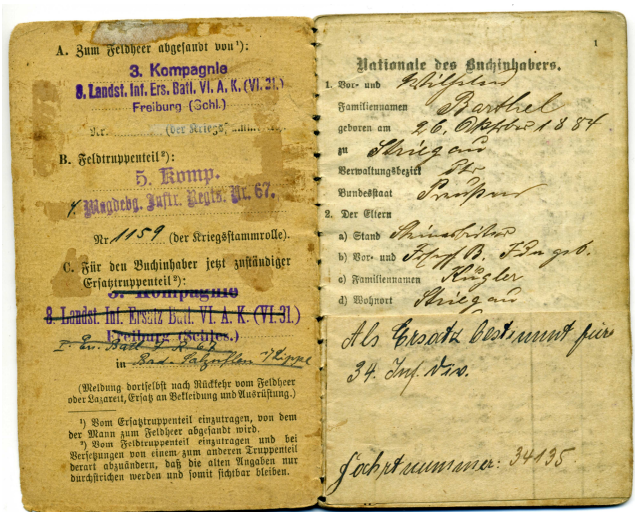 A. Zum Feldheer abgesandt von¹):
3. Kompagnie
8. Landst. Inf. Ers. Batl. VI. A. K. (VI. 31.)
Freiburg (Schl.)
(der Kriegsstammrolle).
B. Feldtruppenteil²):
5. Komp.
4. Magdebg. Inftr. Regts. Nr. 67.
Nr. 1159 (der Kriegsstammrolle).
C. Für den Buchinhaber jetzt zuständiger
Ersatztruppenteil²):
3. Kompagnie
8. Landst. Inf. Ersatz Batl. VI. A. K. (VI. 31.)
Freiburg (Schles.)
I. Ers. Batl. J. R. 67
in Bad-Salzuflen i/Lippe
(Meldung dortselbst nach Rückkehr vom Feldheer
oder Lazarett, Ersatz an Bekleidung und Ausrüstung.)
¹) Vom Ersatztruppenteil einzutragen, von dem
der Mann zum Feldheer abgesandt wird.
²) Vom Feldtruppenteil einzutragen und bei
Versetzungen von einem zum anderen Truppenteil
derart abzuändern, daß die alten Angaben nur
durchstrichen werden und somit sichtbar bleiben.
1
Nationale des Buchinhabers.
1. Vor- und Wilhelm
Familiennamen Barthel
geboren am 26. Oktober 1884
zu Striegau
Verwaltungsbezirk
Bundesstaat Preußen
2. Der Eltern
a) Stand
b) Vor- und
c) Familiennamen Kügler
d) Wohnort Striegau
Als Ersatz bestimmt für
34. Inf. Div.
Fahrtnummer: 34135